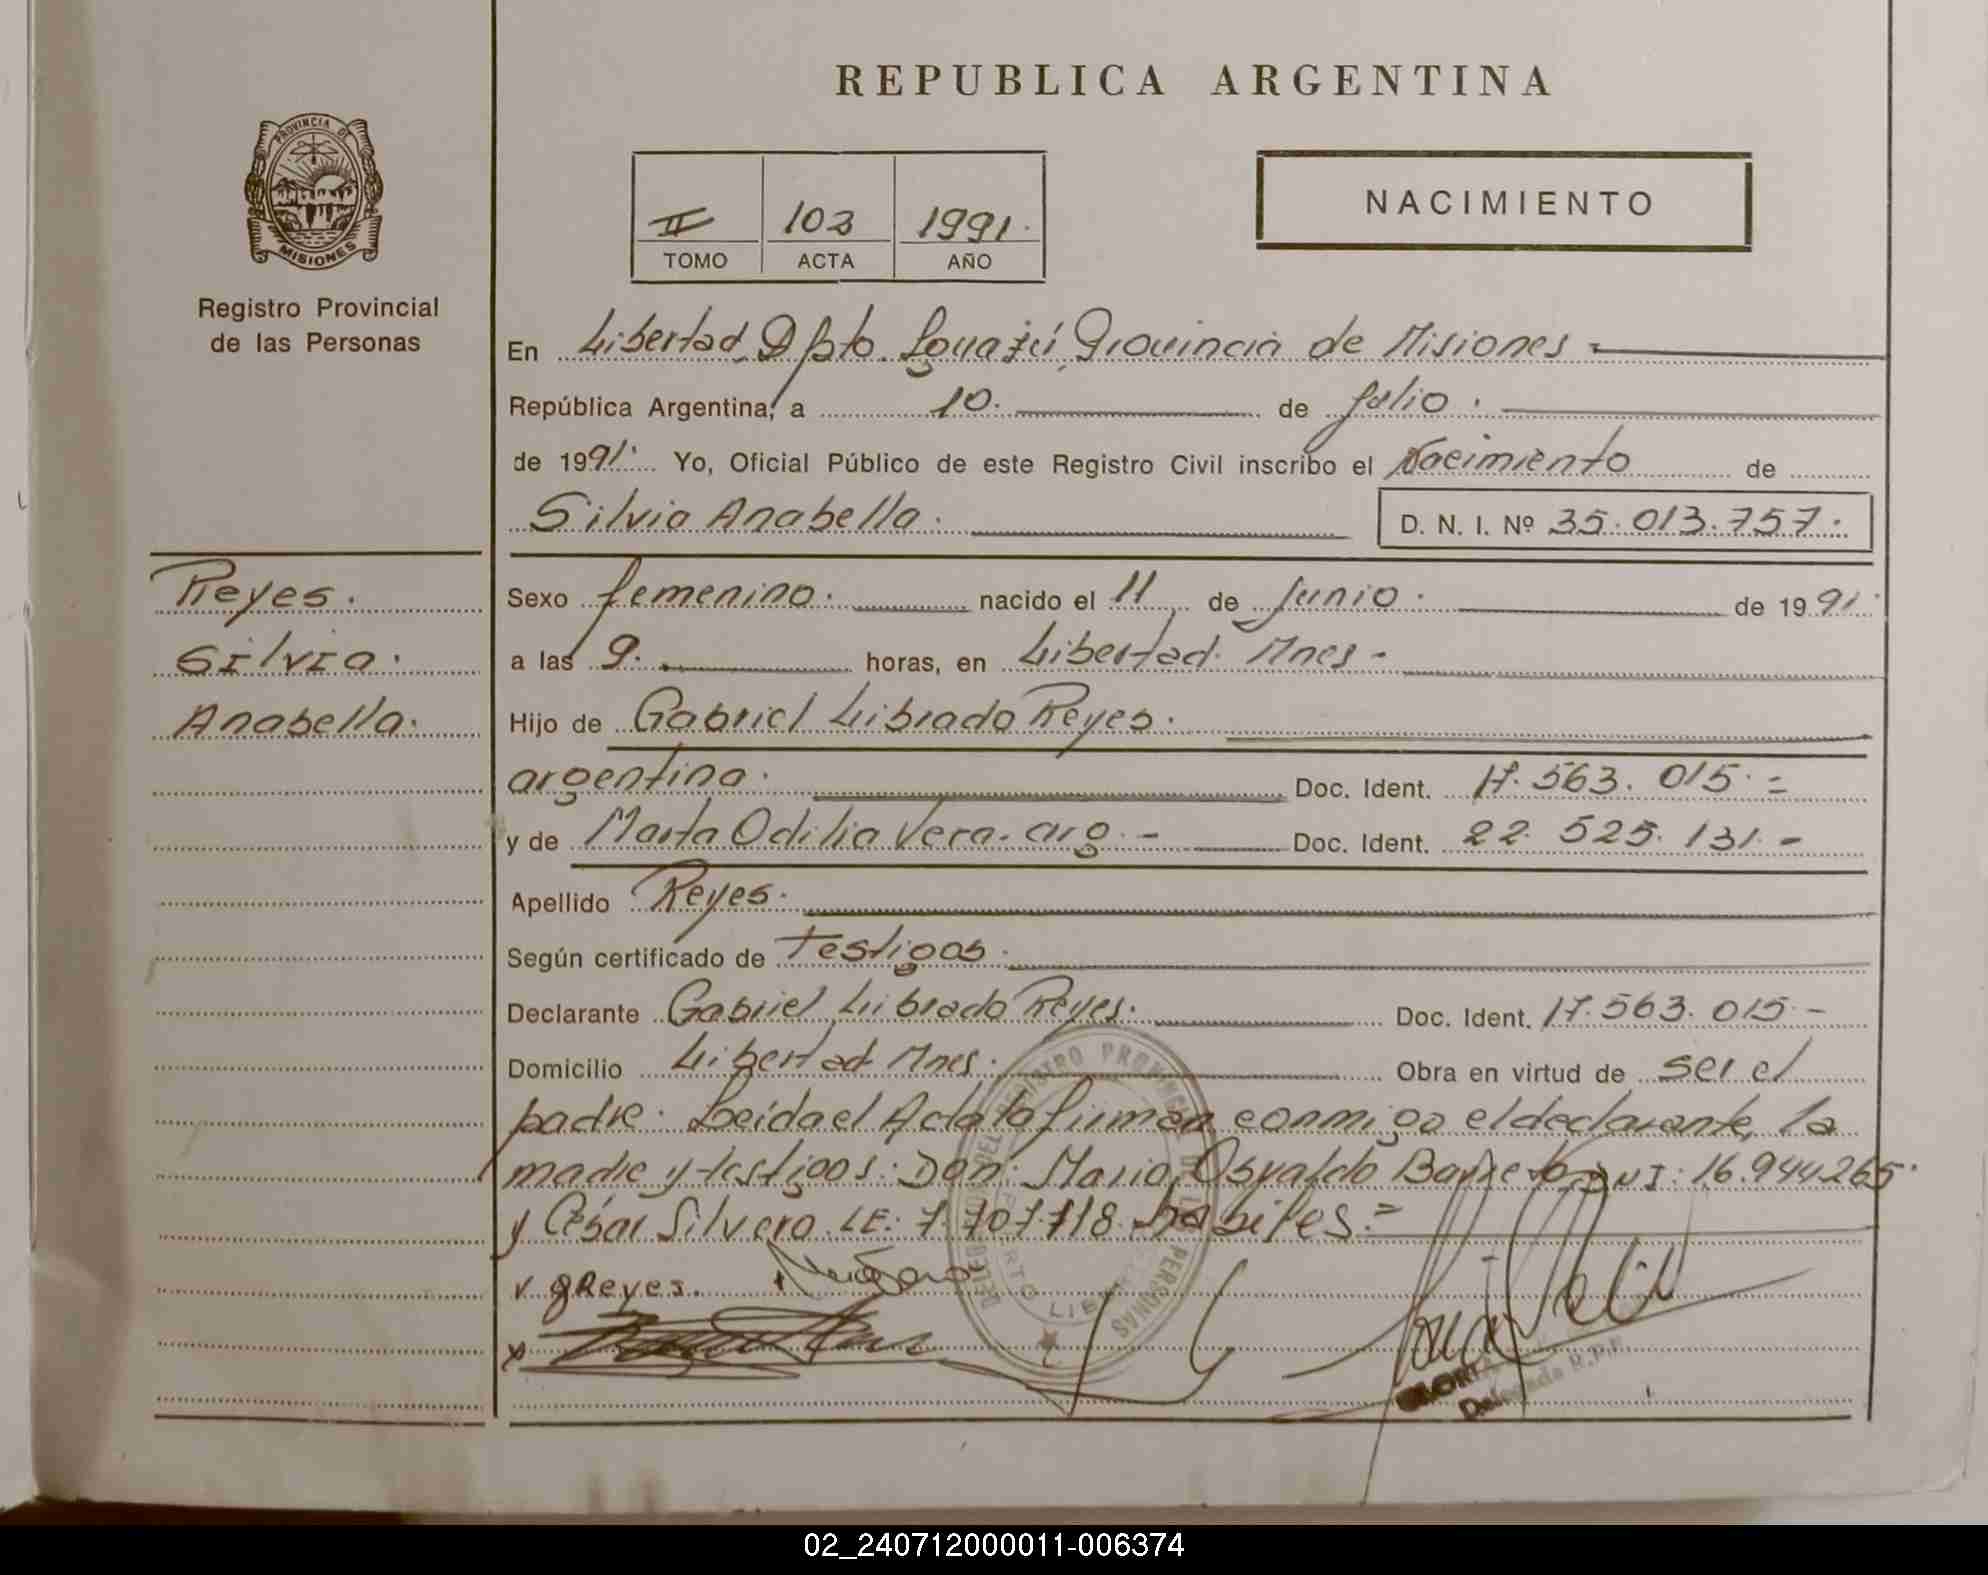 REPUBLICA ARGENTINA
PROVINCIA DE
MISIONES
Registro Provincial
de las Personas
II 103 1991.
TOMO ACTA AÑO
NACIMIENTO
En Libertad Dpto. Iguazú, Provincia de Misiones
República Argentina, a 10. de julio.
de 1991. Yo, Oficial Público de este Registro Civil inscribo el Nacimiento de
Silvia Anabella. D. N. I. Nº 35.013.757.
Reyes.
Silvia.
Anabella.
Sexo femenino. nacido el 11 de junio. de 1991.
a las 9. horas, en Libertad. Mnes-
Hijo de Gabriel Librado Reyes.
argentina. Doc. Ident. 17.563.015.=
y de Marta Odilia Vera. arg.- Doc. Ident. 22.525.131.-
Apellido Reyes.
Según certificado de Testigos.
Declarante Gabriel Librado Reyes. Doc. Ident. 17.563.015.-
Domicilio Libertad Mnes. Obra en virtud de ser el
padre. Leída el Acta la firman conmigo el declarante, la
madre y testigos: Don: Mario Osvaldo Barreto DNI: 16.944.265.
y César Silvero LE: 7.707.718 habiles.=
gReyes.
DEL REGISTRO PROVINCIAL DE LAS PERSONAS
Delegada R.P.P.
02_240712000011-006374